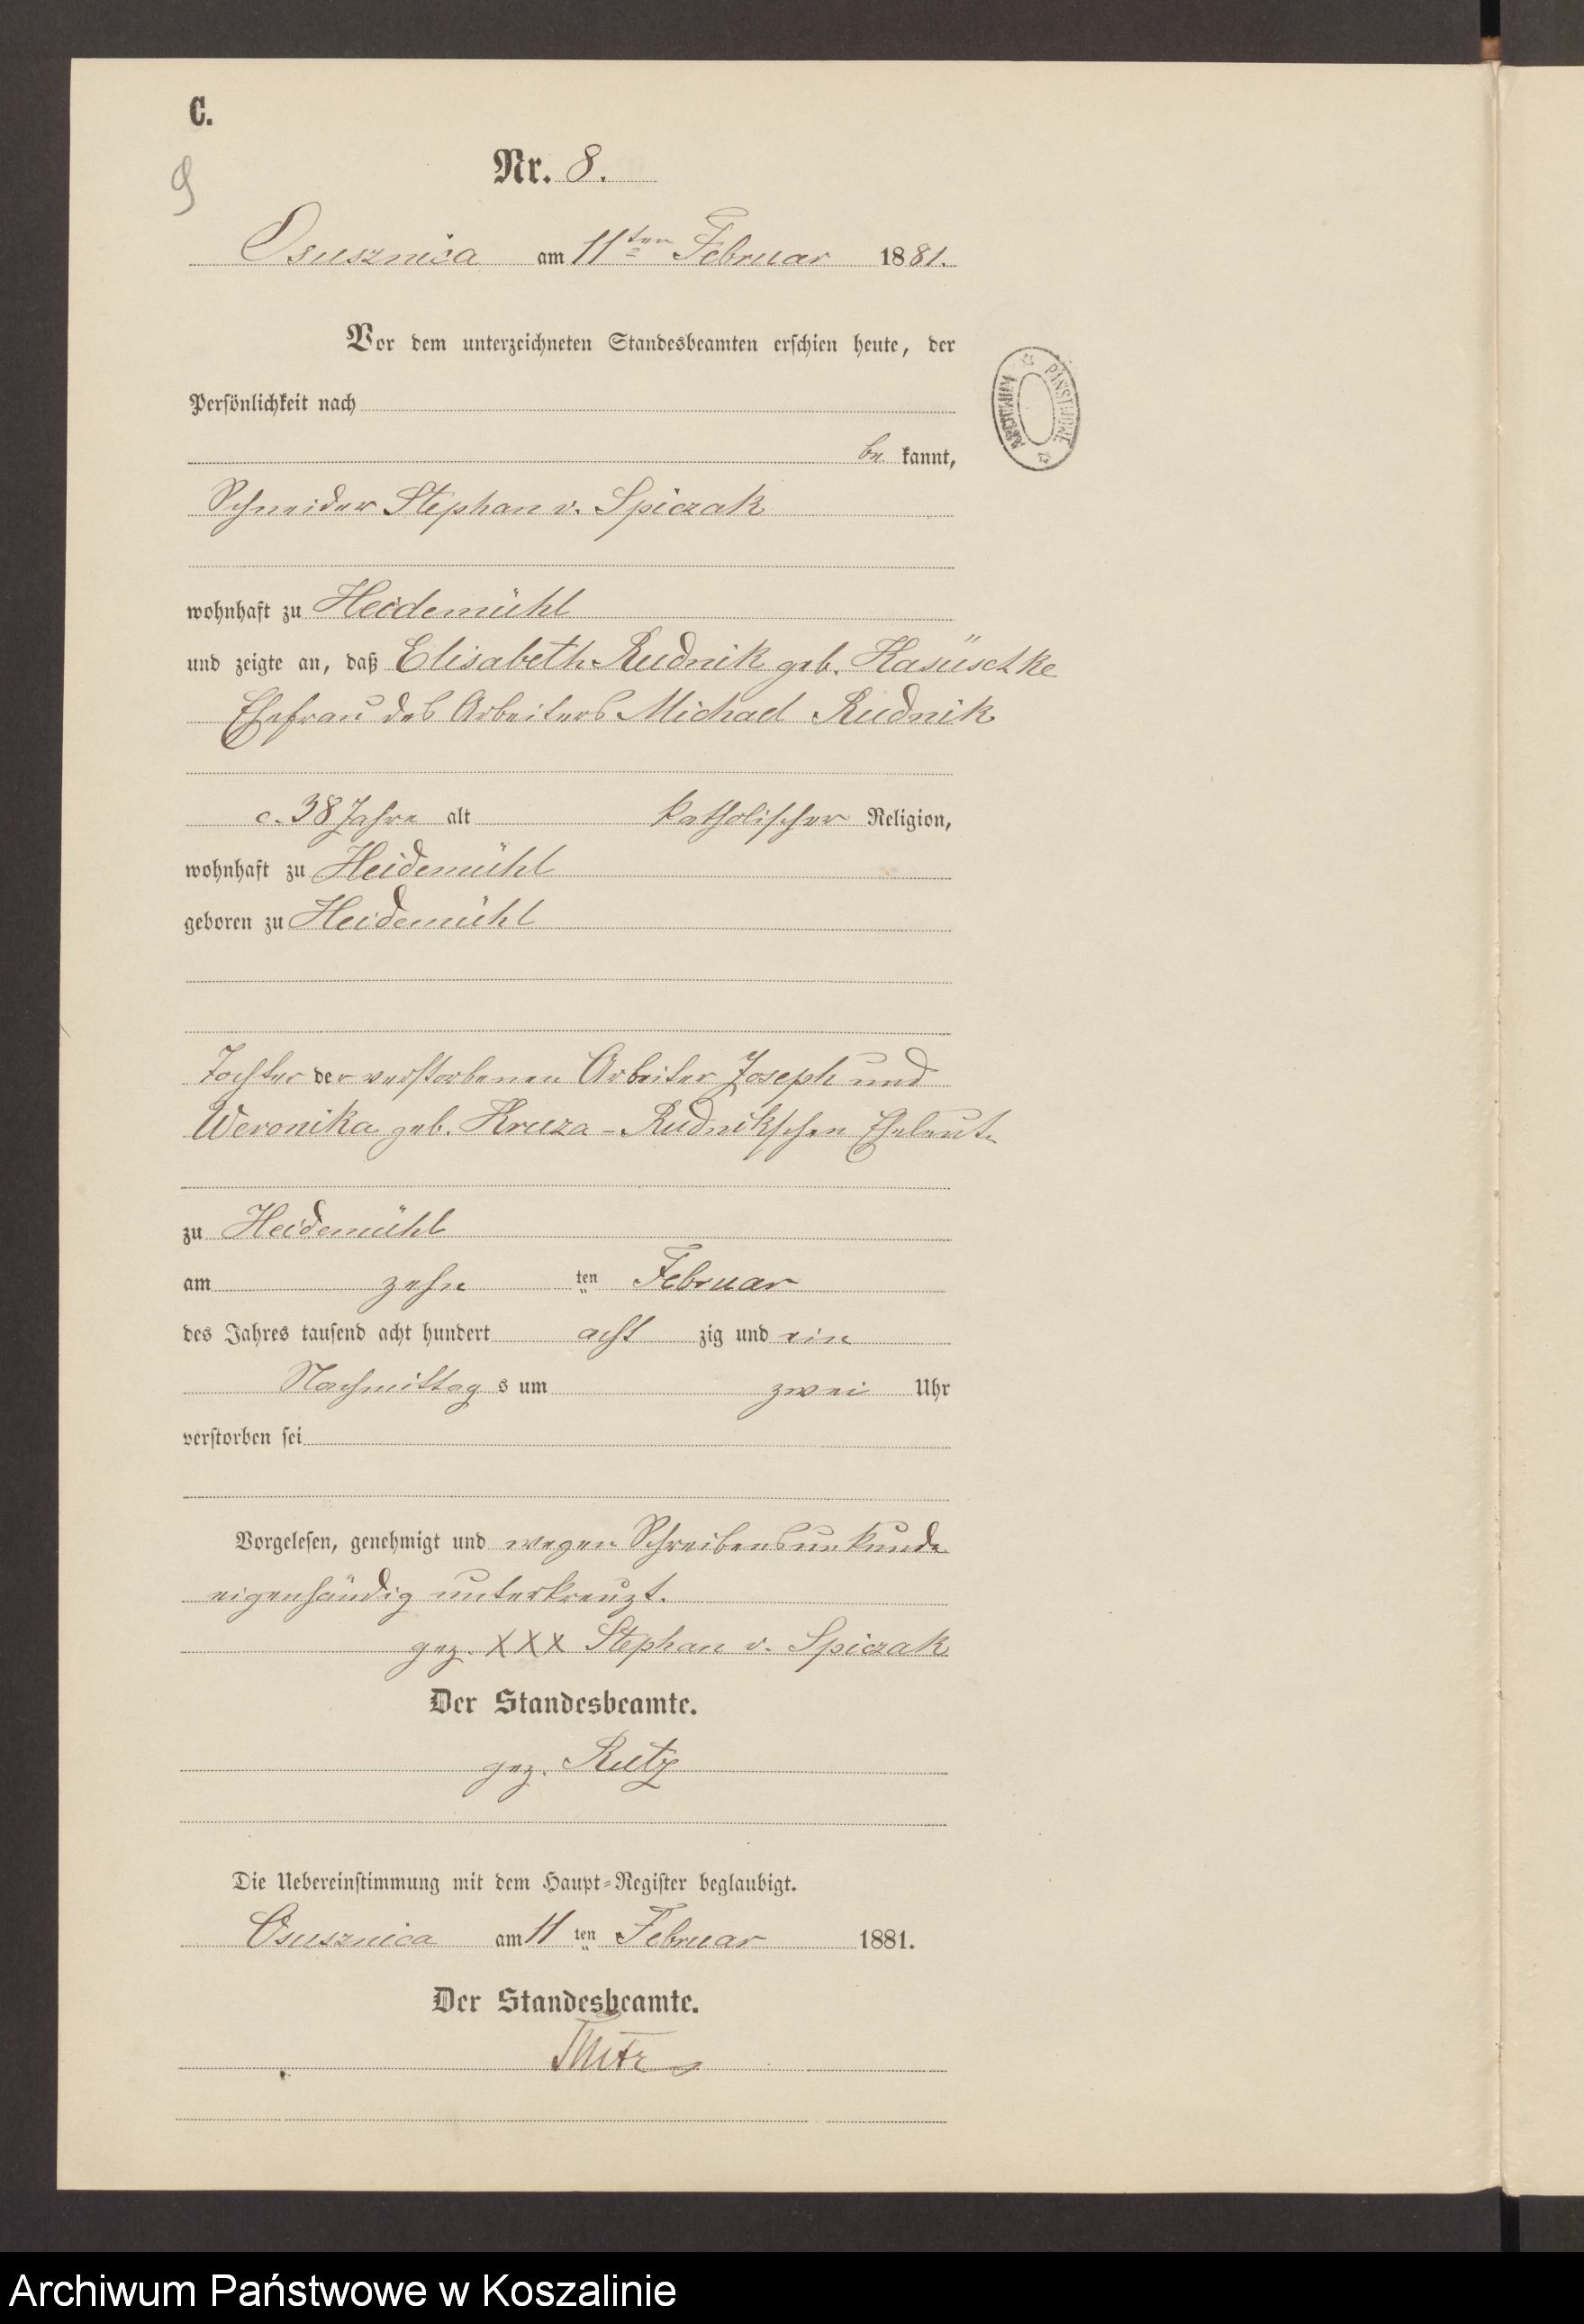 C.
9
Nr. 8.
Osusznica am 11ten Februar 1881.
Vor dem unterzeichneten Standesbeamten erschien heute, der
Persönlichkeit nach
be kannt,
Schneider Stephan v. Spiczak
wohnhaft zu Heidemühl
und zeigte an, daß Elisabeth Rudnik geb. Kasüschke
Ehefrau des Arbeiters Michael Rudnik
c. 38 Jahre alt katholischer Religion,
wohnhaft zu Heidemühl
geboren zu Heidemühl
Tochter der verstorbenen Arbeiter Joseph und
Weronika geb. Kruza-Rudnikschen Eheleute
zu Heidemühl
am zehn ten Februar
des Jahres tausend acht hundert acht zig und ein
Nachmittag s um zwei Uhr
verstorben sei
Vorgelesen, genehmigt und wegen Schreibensunkunde
eigenhändig unterkreuzt.
gez. XXX Stephan v. Spiczak
Der Standesbeamte.
gez. Rutz
Die Uebereinstimmung mit dem Haupt-Register beglaubigt.
Osusznica am 11 ten Februar 1881.
Der Standesbeamte.
ARCHIWUM PAŃSTWOWE
Archiwum Państwowe w Koszalinie